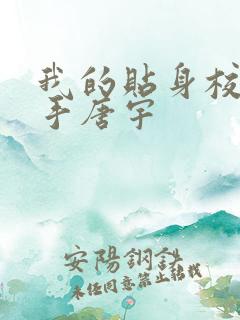 我的貼身校
手唐宇
安陽鋼鉄
未经同意禁止转载